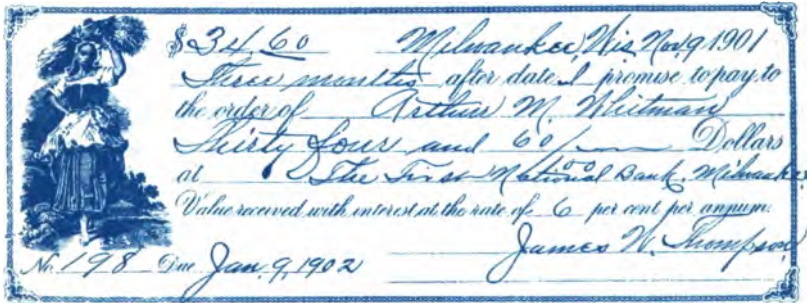 $34.60 Milwaukee, Wis. Nov. 9 1901
Three months after date I promise to pay to
the order of Arthur M. Whitman
Thirty four and 60/100 Dollars
at The First National Bank, Milwaukee
Value received with interest at the rate of 6 per cent per annum.
James W. Thompson
No. 198 Due Jan. 9, 1902